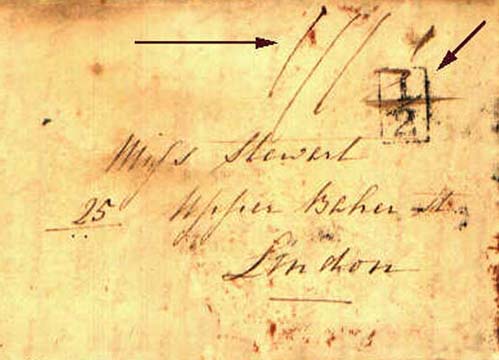 1/2
Miss Stewart
25 Upper Baker St.
London